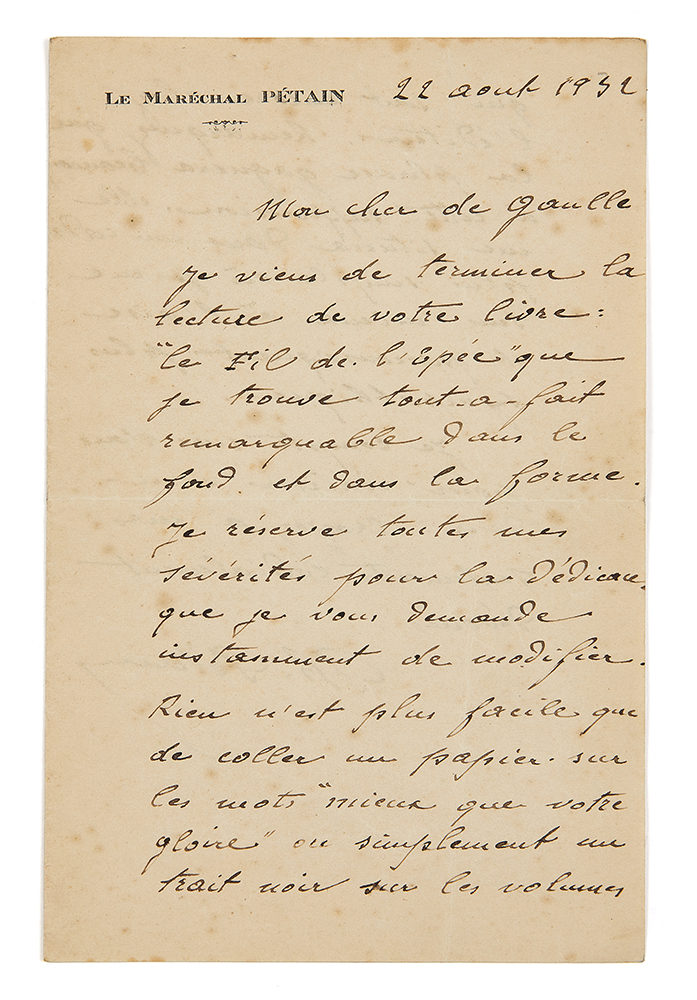 LE MARÉCHAL PÉTAIN
22 aout 1932
Mon cher de Gaulle
Je viens de terminer la
lecture de votre livre :
"le Fil de l'Epée" que
je trouve tout-a-fait
remarquable dans le
fond et dans la forme.
Je réserve toutes mes
sévérités pour la dédicace,
que je vous demande
instamment de modifier.
Rien n'est plus facile que
de coller un papier sur
les mots "mieux que votre
gloire" ou simplement un
trait noir sur les volumes